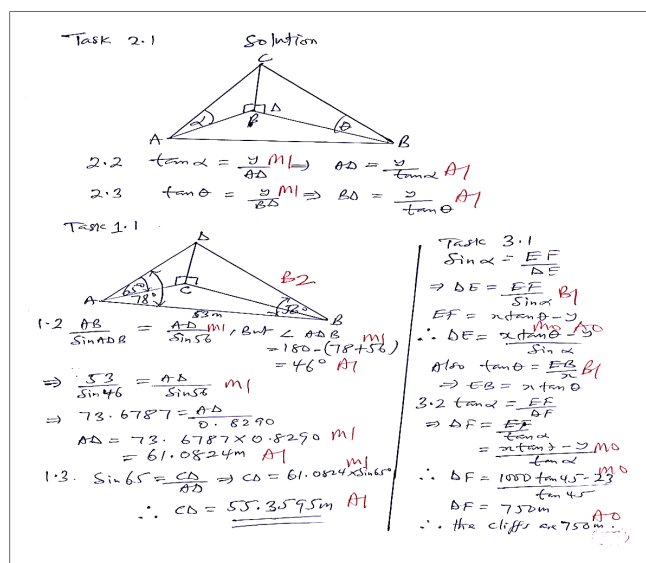 Task 2.1 Solution
C
α D θ
β
A B
2.2 tanα = y/AD M1 ⇒ AD = y/tanα A1
2.3 tanθ = y/BD M1 ⇒ BD = y/tanθ A1
Task 1.1
D
B2
65° C
A 78° 53m B
1.2 AB/SinADB = AD/Sin56 M1, But ∠ADB M1
= 180-(78+56)
= 46° A1
⇒ 53/Sin46 = AD/Sin56 M1
⇒ 73.6787 = AD/0.8290
AD = 73.6787×0.8290 M1
= 61.0824m A1
1.3. Sin65 = CD/AD ⇒ CD = 61.0824×Sin65° M1
∴ CD = 55.3595m A1
Task 3.1
Sinα = EF/DE
⇒ DE = EF/Sinα B1
EF = xtanθ-y
∴ DE = xtanθ-y/Sinα M0 A0
Also tanθ = EB/x B1
⇒ EB = x tanθ
3.2 tanα = EF/DF
⇒ DF = EF/tanα
= xtanθ-y/tanα M0
∴ DF = 1000tan45-23/tan45 M0
DF = 750m
∴ the cliffs are 750m. A0